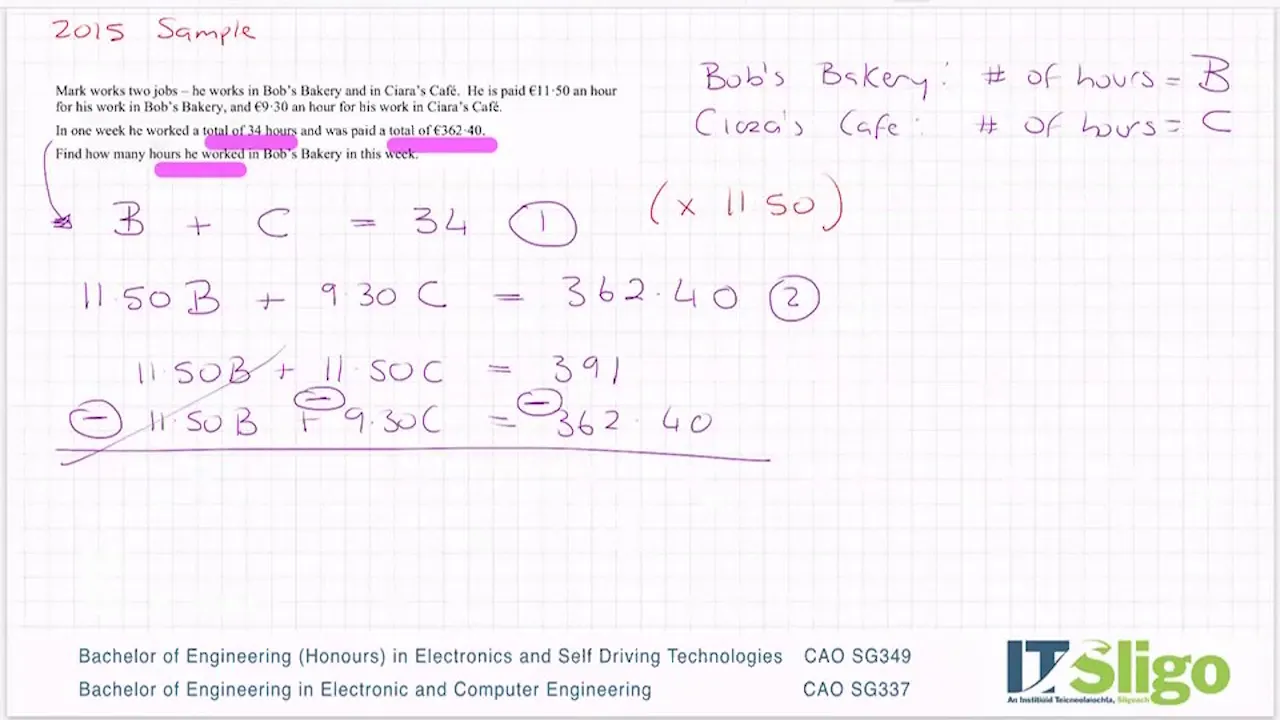 2015 Sample
Mark works two jobs – he works in Bob's Bakery and in Ciara's Café. He is paid €11·50 an hour
for his work in Bob's Bakery, and €9·30 an hour for his work in Ciara's Café.
In one week he worked a total of 34 hours and was paid a total of €362·40.
Find how many hours he worked in Bob's Bakery in this week.
Bob's Bakery: # of hours = B
Ciara's Cafe: # of hours = C
B + C = 34 ①
(x 11 50)
11·50 B + 9·30 C = 362·40 ②
11·50B + 11·50C = 391
− 11·50B + − 9·30C = − 362·40
Bachelor of Engineering (Honours) in Electronics and Self Driving Technologies CAO SG349
Bachelor of Engineering in Electronic and Computer Engineering CAO SG337
IT Sligo
An Institiúid Teicneolaíochta, Sligeach